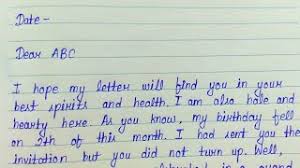 Date -
Dear ABC
I hope my letter will find you in your
best spirits and health. I am also hale and
hearty here. As you know, my birthday fell
on 24th of this month. I had sent you the
invitation but you did not turn up. Well,